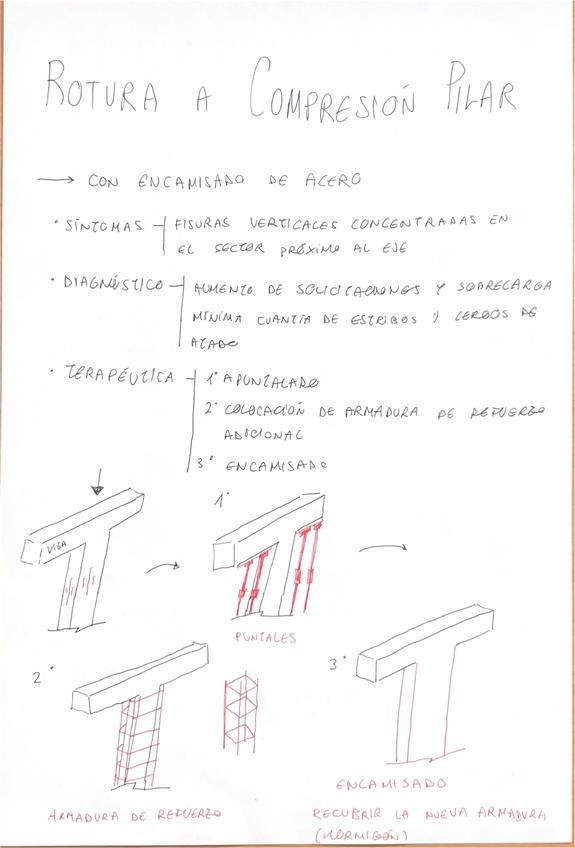 ROTURA A COMPRESIÓN PILAR
→ CON ENCAMISADO DE ACERO
· SÍNTOMAS - FISURAS VERTICALES CONCENTRADAS EN
EL SECTOR PRÓXIMO AL EJE
· DIAGNÓSTICO - AUMENTO DE SOLICITACIONES Y SOBRECARGA
MINIMA CUANTÍA DE ESTRIBOS Y CERCOS DE
ATADO
· TERAPÉUTICA - 1° APUNTALADO
2° COLOCACIÓN DE ARMADURA DE REFUERZO
ADICIONAL
3° ENCAMISADO
1°
VIGA
PUNTALES
2°
3°
ENCAMISADO
ARMADURA DE REFUERZO
RECUBRIR LA NUEVA ARMADURA
(HORMIGÓN)